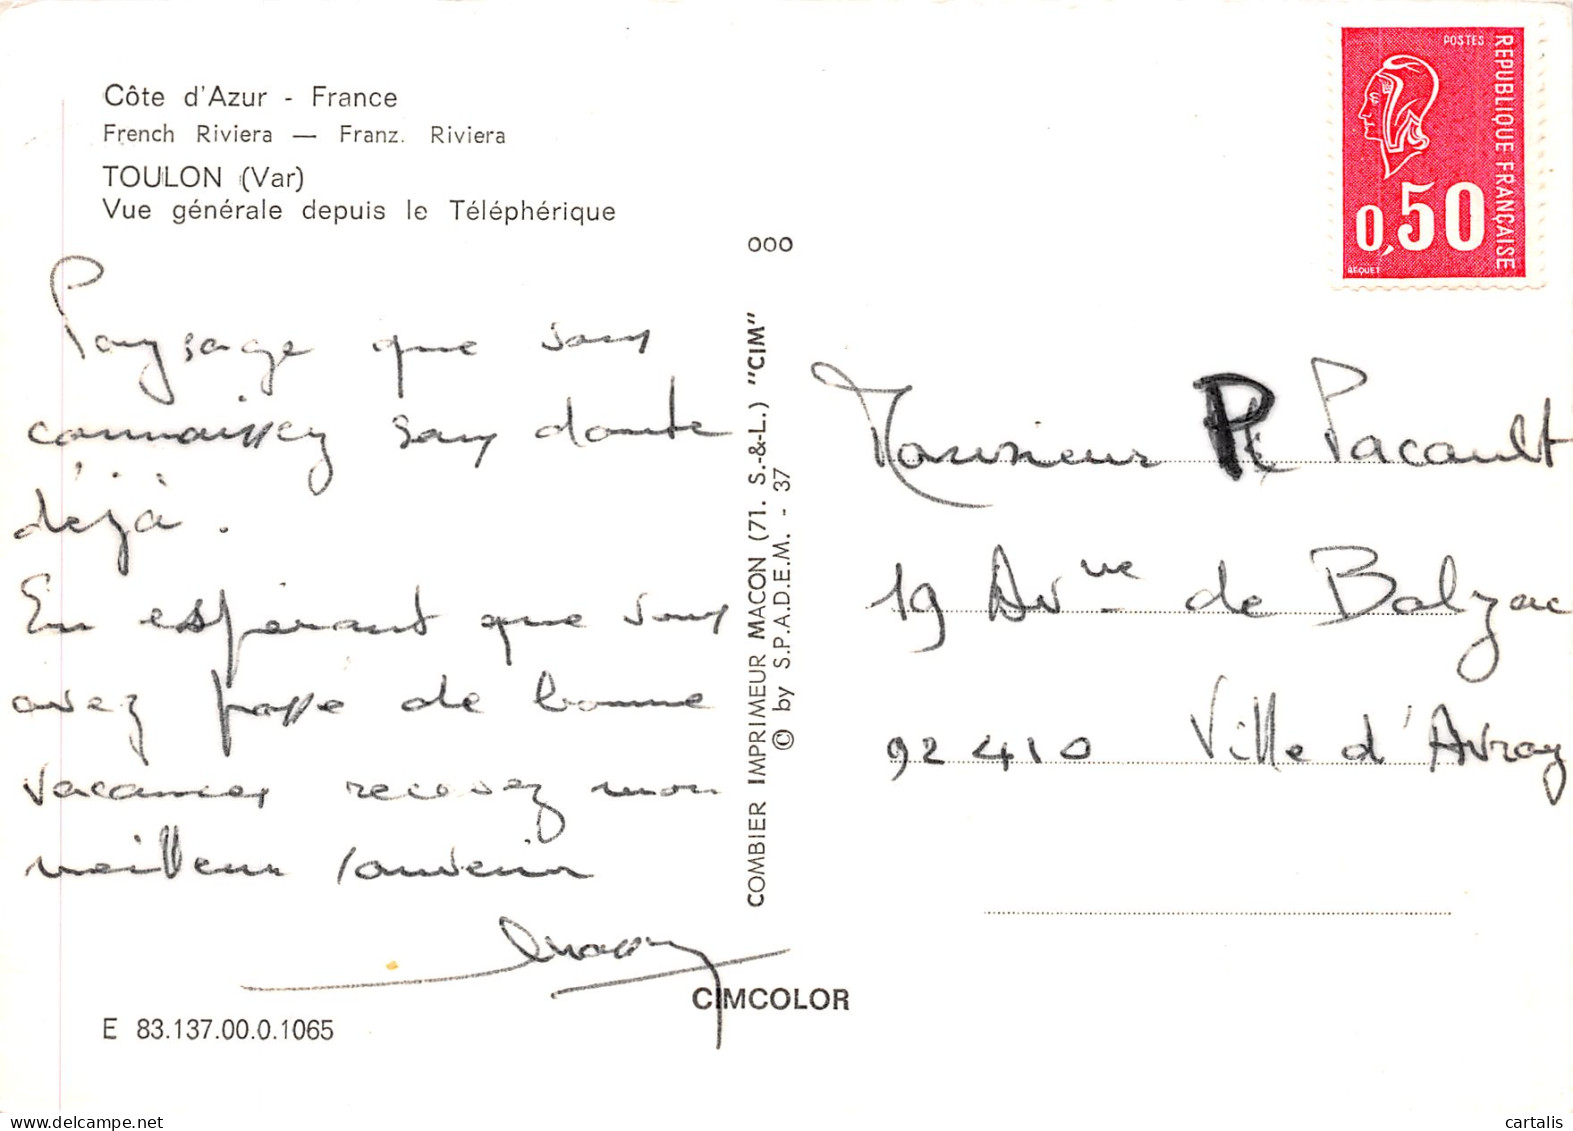 Côte d'Azur - France
French Riviera — Franz. Riviera
TOULON (Var)
Vue générale depuis le Téléphérique
Paysage que vous
connaissez sans doute
déjà.
En espérant que vous
avez passé de bonne
vacances recevez mon
meilleur souvenir
E 83.137.00.0.1065
000
COMBIER IMPRIMEUR MACON (71. S.-&-L.) "CIM"
© by S.P.A.D.E.M. - 37
CIMCOLOR
POSTES
REPUBLIQUE FRANÇAISE
0,50
BEQUET
Monsieur P. Pacault
19 Avnue de Balzac
92410 Ville d'Avray
www.delcampe.net
cartalis